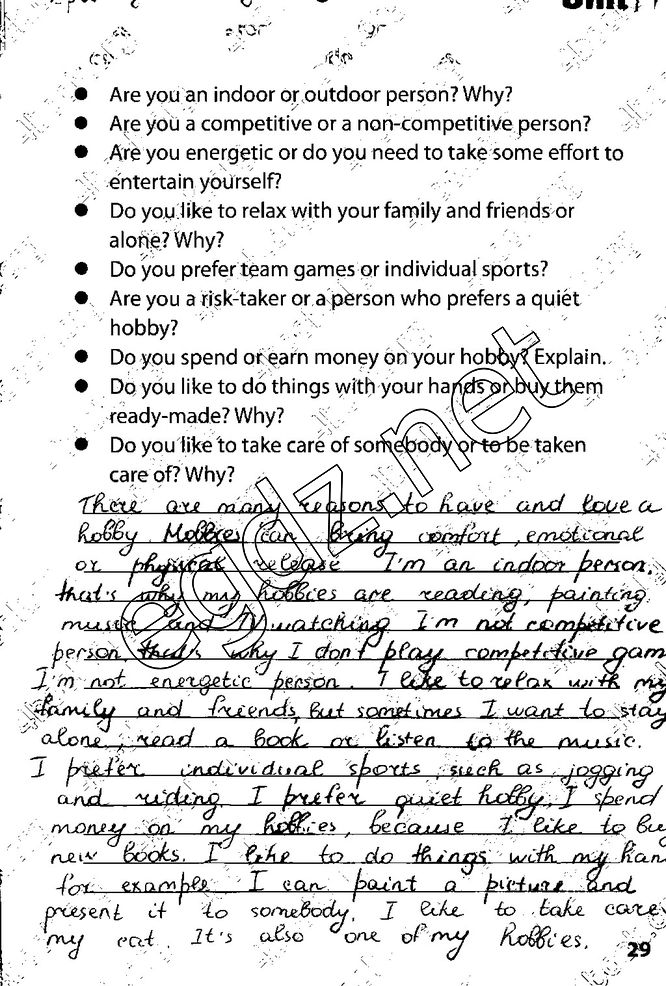 Unit
Are you an indoor or outdoor person? Why?
Are you a competitive or a non-competitive person?
Are you energetic or do you need to take some effort to
entertain yourself?
Do you like to relax with your family and friends or
alone? Why?
Do you prefer team games or individual sports?
Are you a risk-taker or a person who prefers a quiet
hobby?
Do you spend or earn money on your hobby? Explain.
Do you like to do things with your hands or buy them
ready-made? Why?
Do you like to take care of somebody or to be taken
care of? Why?
There are many reasons to have and love a
hobby. Hobbies can bring comfort, emotional
or physical release. I'm an indoor person,
that's why my hobbies are reading, painting,
music and TV watching. I'm not competitive
person, that's why I don't play competitive gam
I'm not energetic person. I like to relax with my
family and friends, but sometimes I want to stay
alone, read a book or listen to the music.
I prefer individual sports, such as jogging
and riding. I prefer quiet hobby. I spend
money on my hobbies, because I like to buy
new books. I like to do things with my han
for example I can paint a picture and
present it to somebody. I like to take care
my cat. It's also one of my hobbies.
29
egdz.net